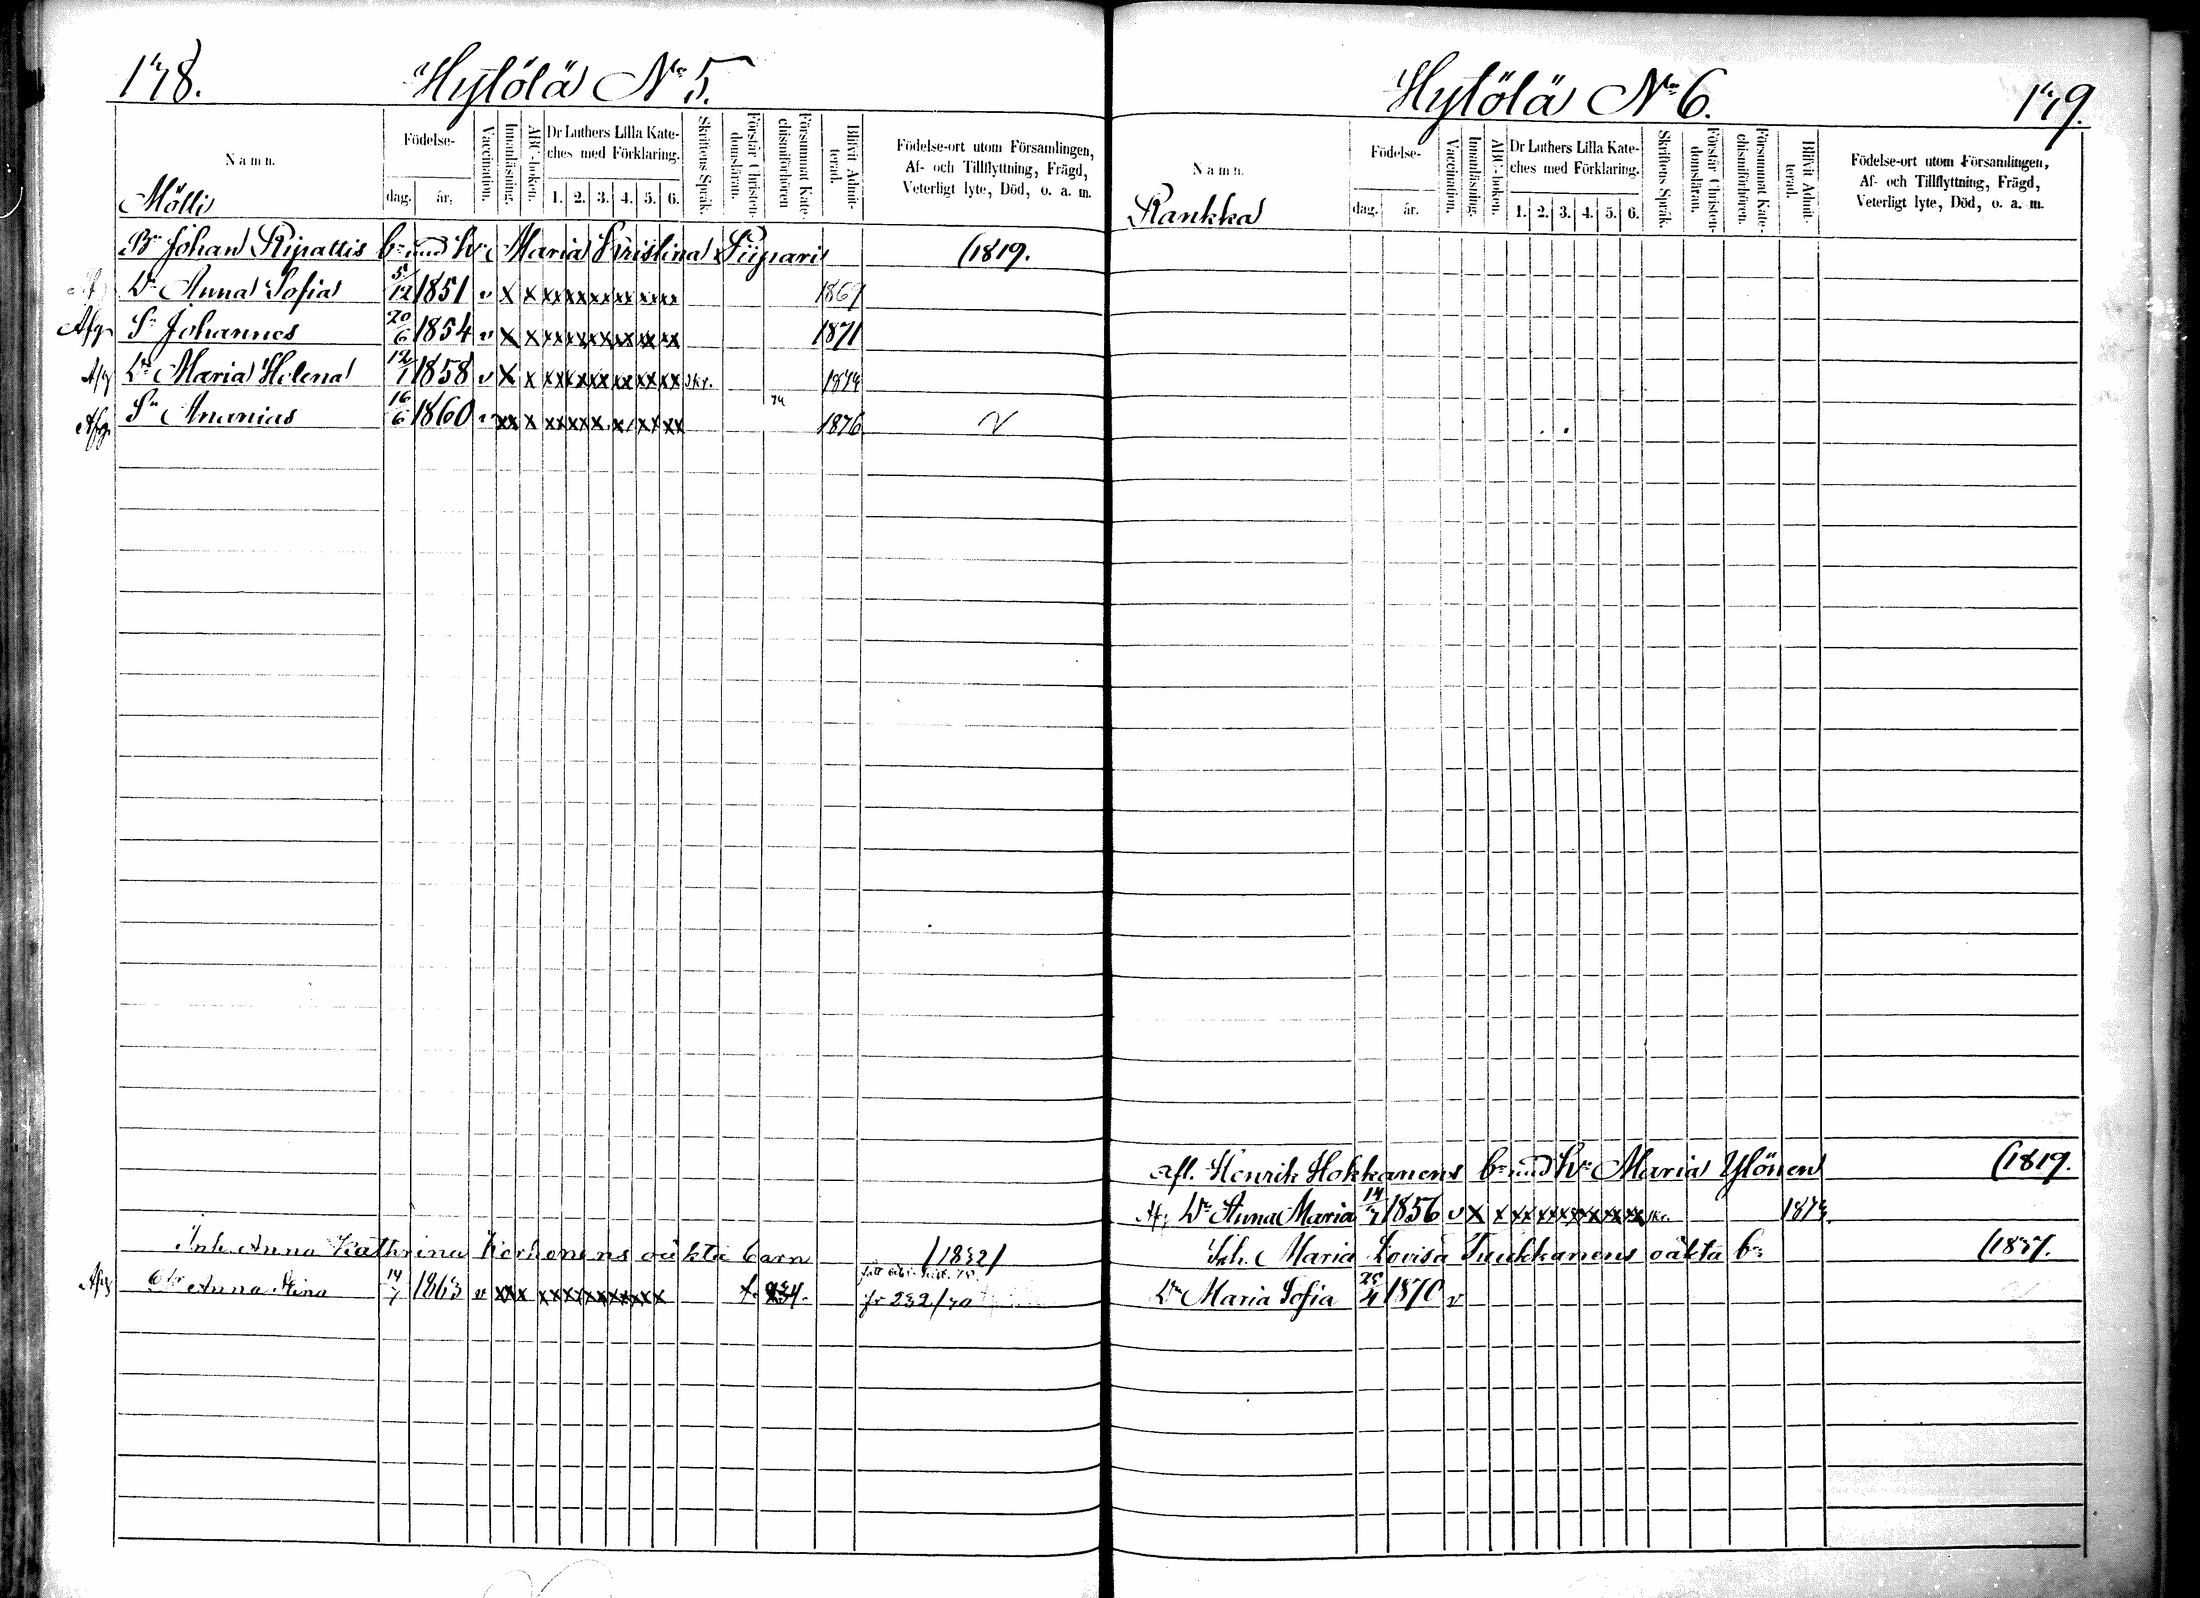 178.
Hytölä No 5.
Namn.
Födelse-
dag.
år.
Vaccination.
Innanläsning.
ABC-boken.
Dr Luthers Lilla Kate-
ches med Förklaring.
1. 2. 3. 4. 5. 6.
Skriftens Språk.
Förstår Christen-
domsläran.
Försummat Kate-
chismiförhören
Blifvit Admit-
terad.
Födelse-ort utom Församlingen,
Af- och Tillflyttning, Frägd,
Veterligt lyte, Död, o. a. m.
Mölli
Bn Johan Ripattis bn med h. Maria Kristina Piipari (1819.
Dr Anna Sofia 5/12 1851 v x x xx xx xx xx xx xx 1867
Afg Sn Johannes 20/6 1854 v x x xx xx xx xx xx xx 1871
Afg Dr Maria Helena 12/1 1858 v x x xx xx xx xx xx xx skr. 1874
Afg. Sn Ananias 16/6 1860 v xx x xx xx x x xx xx 74 1876 v
Inh. Anna Kathrina Korhonens oäkta barn (1832)
Afg Dr Anna Stina 14/7 1863 v xx x xx xx xx xx xx x
fr 232/70
Hytölä No 6.
179.
Namn.
Födelse-
dag.
år.
Vaccination.
Innanläsning.
ABC-boken.
Dr Luthers Lilla Kate-
ches med Förklaring.
1. 2. 3. 4. 5. 6.
Skriftens Språk.
Förstår Christen-
domsläran.
Försummat Kate-
chismiförhören.
Blifvit Admit-
terad.
Födelse-ort utom Församlingen,
Af- och Tillflyttning, Frägd,
Veterligt lyte, Död, o. a. m.
Rankka
Afl. Henrik Hokkanens bn med h. Maria Ylönen (1819.
Afg Dr Anna Maria 14/7 1856 v x x xx xx xx xx xx xx skr. 1874
Inh. Maria Lovisa Tuukkanens oäkta bn (1837.
Dr Maria Sofia 25/4 1870 v